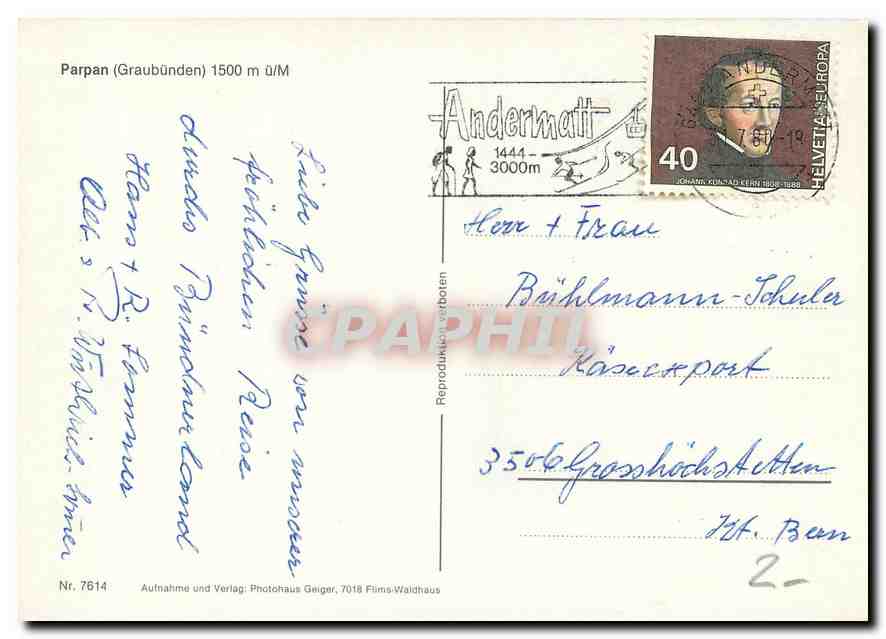 Parpan (Graubünden) 1500 m ü/M
Liebe Grüsse von unserer
fröhlichen Reise
durchs Bündnerland
Hans + R. Sommer
Andermatt
1444-
3000m
40
JOHANN KONRAD KERN 1808-1888
HELVETIA·EUROPA
Herr + Frau
Bühlmann-Schuler
Käseexport
3506 Grosshöchstetten
Kt. Bern
Reproduktion verboten
CPAPHIL
2.-
Nr. 7614
Aufnahme und Verlag: Photohaus Geiger, 7018 Flims-Waldhaus